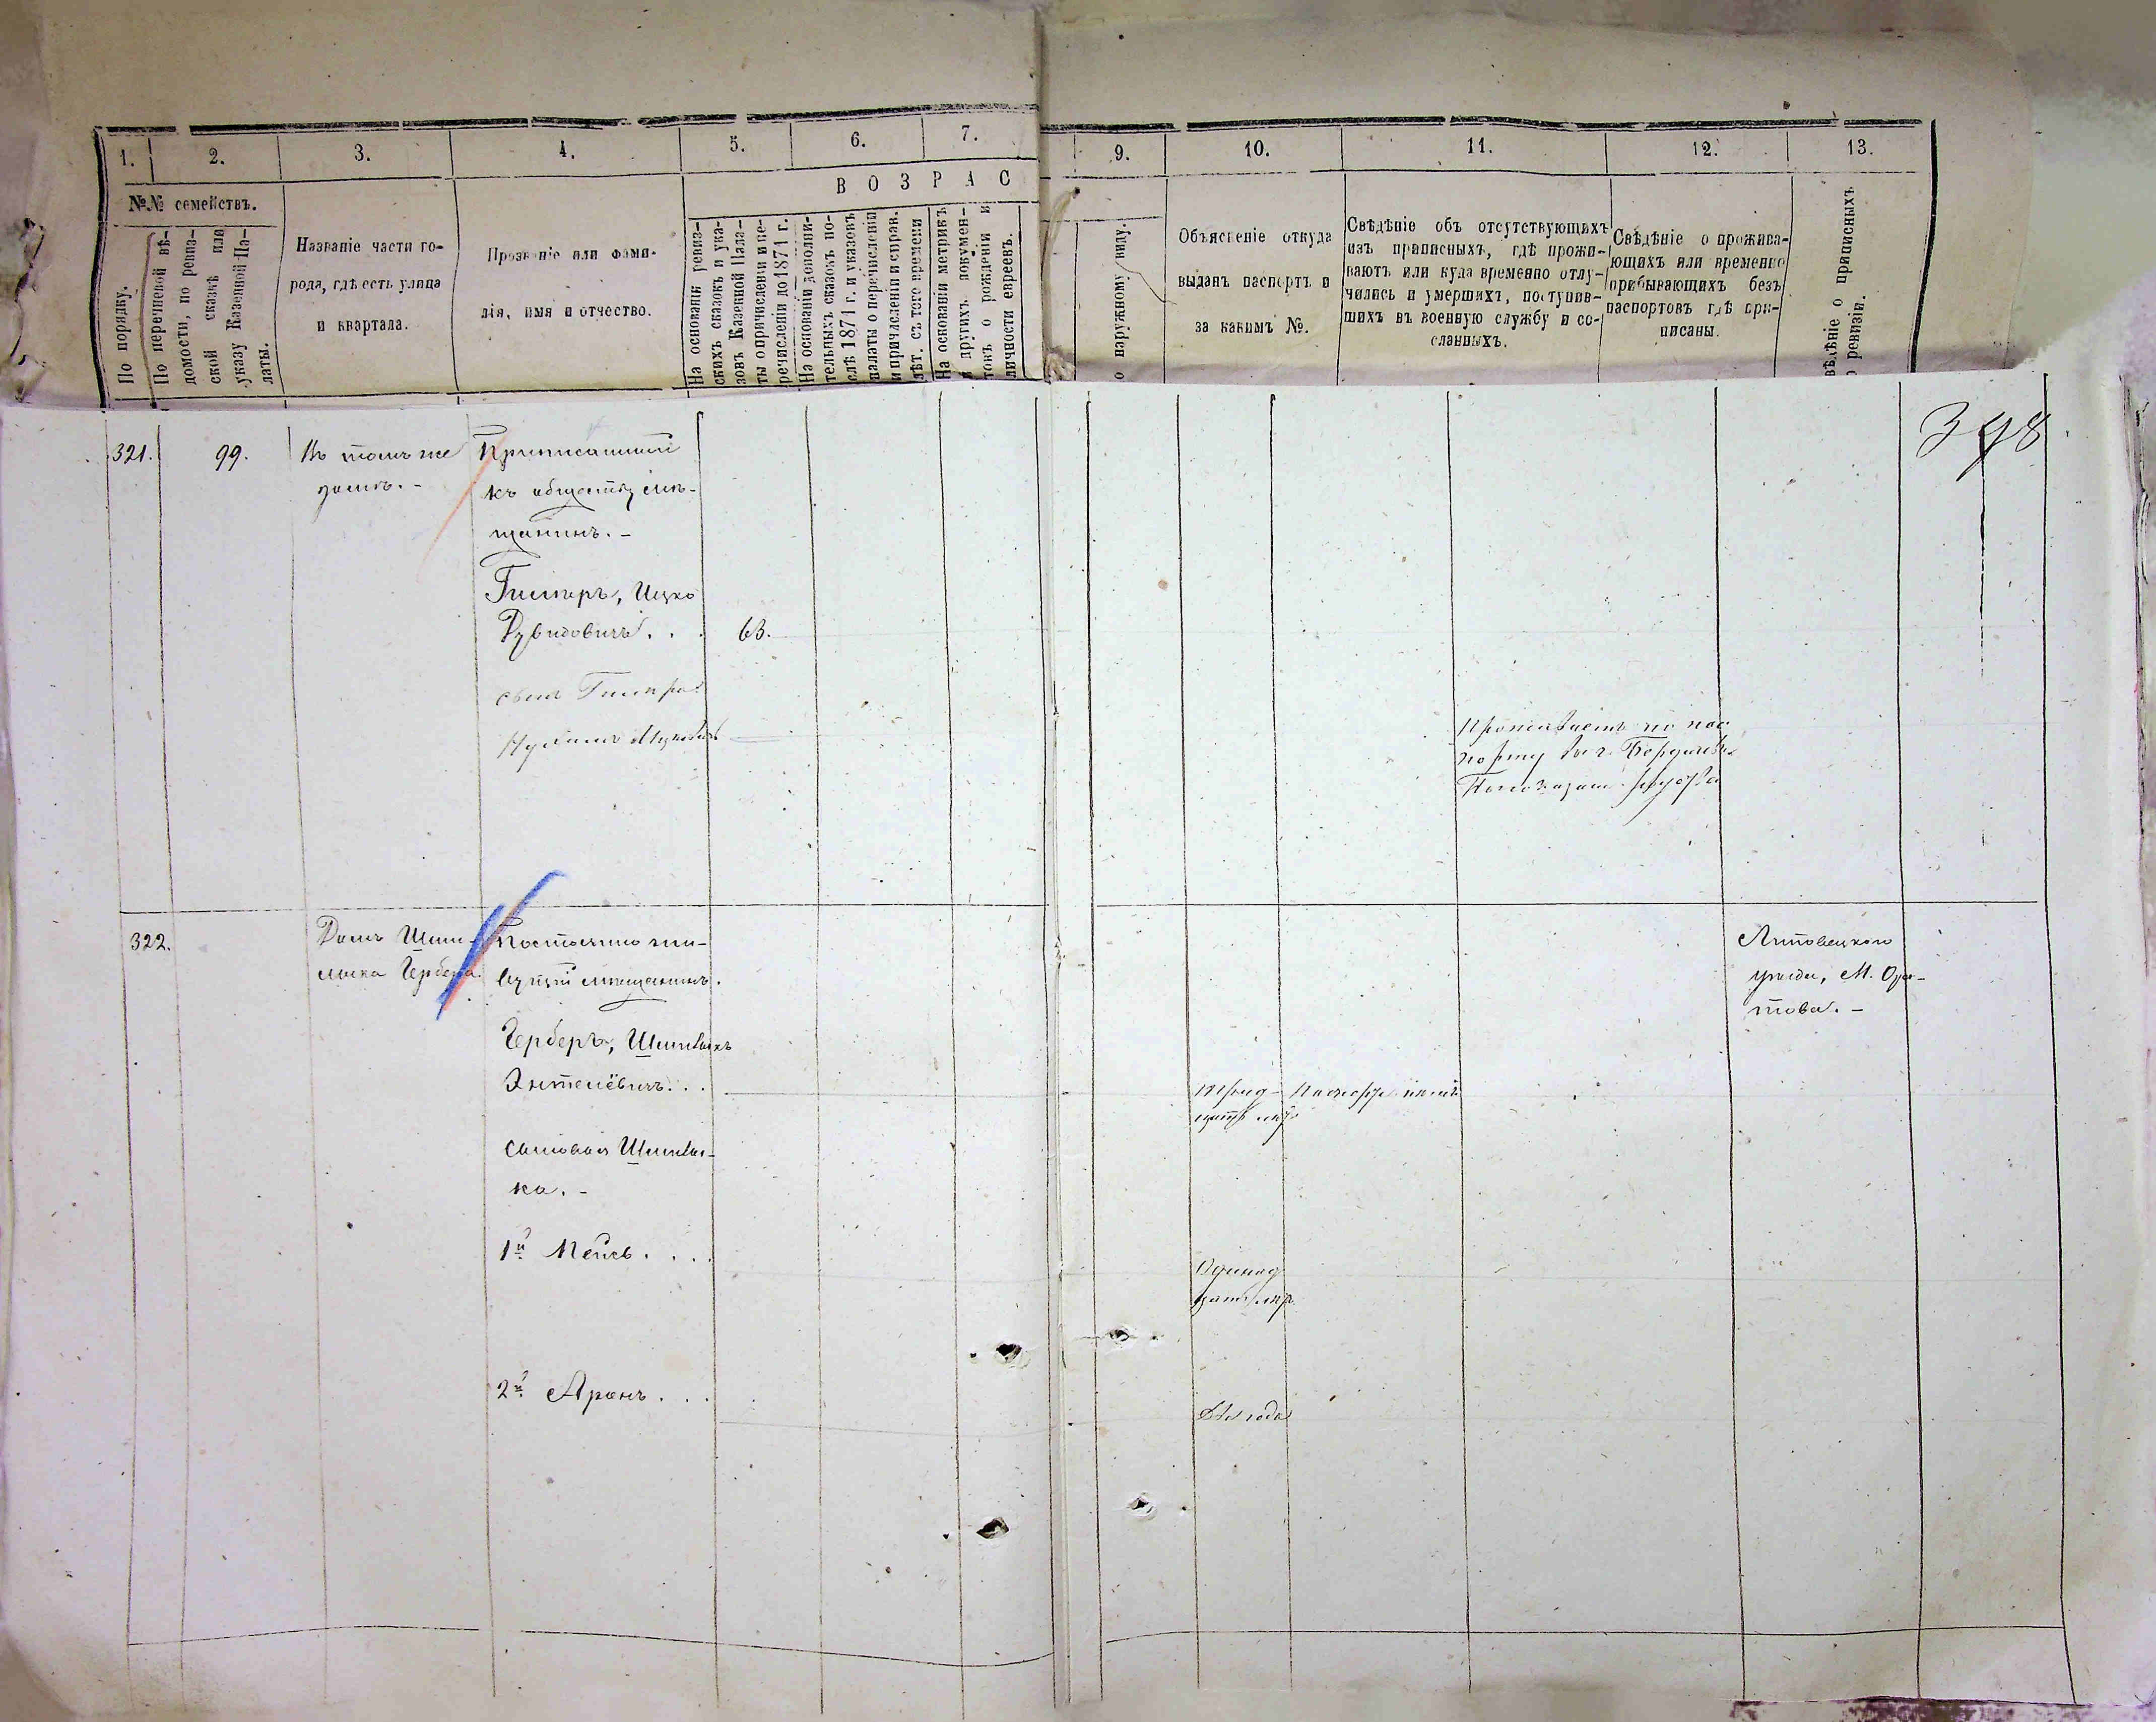 1.
2.
3.
4.
5.
6.
7.
9.
10.
11.
12.
13.
№№ семействъ.
По порядку.
По перечневой вѣ-
домости, по ревиз-
ской сказкѣ или
указу Казенной Па-
латы.
Названіе части го-
рода, гдѣ есть улица
и квартала.
Прозваніе или фами-
лія, имя и отчество.
ВОЗРАС
На основаніи ревиз-
скихъ сказокъ и ука-
зовъ Казенной Пала-
ты о причисленіи и пе-
речисленіи до 1871 г.
На основаніи дополни-
тельныхъ сказокъ по-
слѣ 1871 г. и указовъ
палаты о перечисленіи
и причисленіи и справ.
лѣт. съ того времени
На основаніи метрикъ
и другихъ докумен-
товъ о рожденіи и
личности евреевъ.
о наружному виду.
Объясненіе откуда
выданъ паспортъ и
за какимъ №.
Свѣдѣніе объ отсутствующихъ
изъ приписныхъ, гдѣ прожи-
ваютъ или куда временно отлу-
чились и умершихъ, поступив-
шихъ въ военную службу и со-
сланныхъ.
Свѣдѣніе о прожива-
ющихъ или временно
прибывающихъ безъ
паспортовъ гдѣ при-
писаны.
вѣдѣніе о приписныхъ
о ревизіи.
398
321.
99.
Въ томъ же
домѣ. -
Приписанный
къ обществу мѣ-
щанинъ. -
Гитеръ, Ицко
Дувидовичъ . .
63.
сынъ
Проживаетъ по пас
порту въ г. Бердичевѣ
322.
Домъ Шми-
лика Гербера.
Постоянно жи-
вущій мѣщанинъ.
Герберъ, Шмилыкъ
. . .
Сыновья Шмилы-
ка. -
1й Мейсь . . . .
2й Аронъ . . .
Трид-
цать лѣтъ
Одинад
цать лѣтъ
Два года
Липовецкого
уѣзда, М. Ора-
това. -